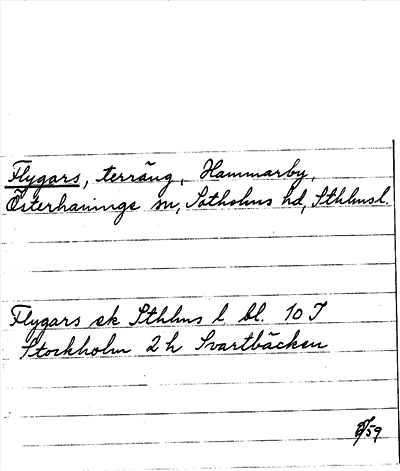 Flygars, terräng, Hammarby,
Österhaninge sn, Sotholms hd, Sthlmsl.
Flygars ek Sthlms l. bl. 10 I
Stockholm 2 h Svartbäcken
/59